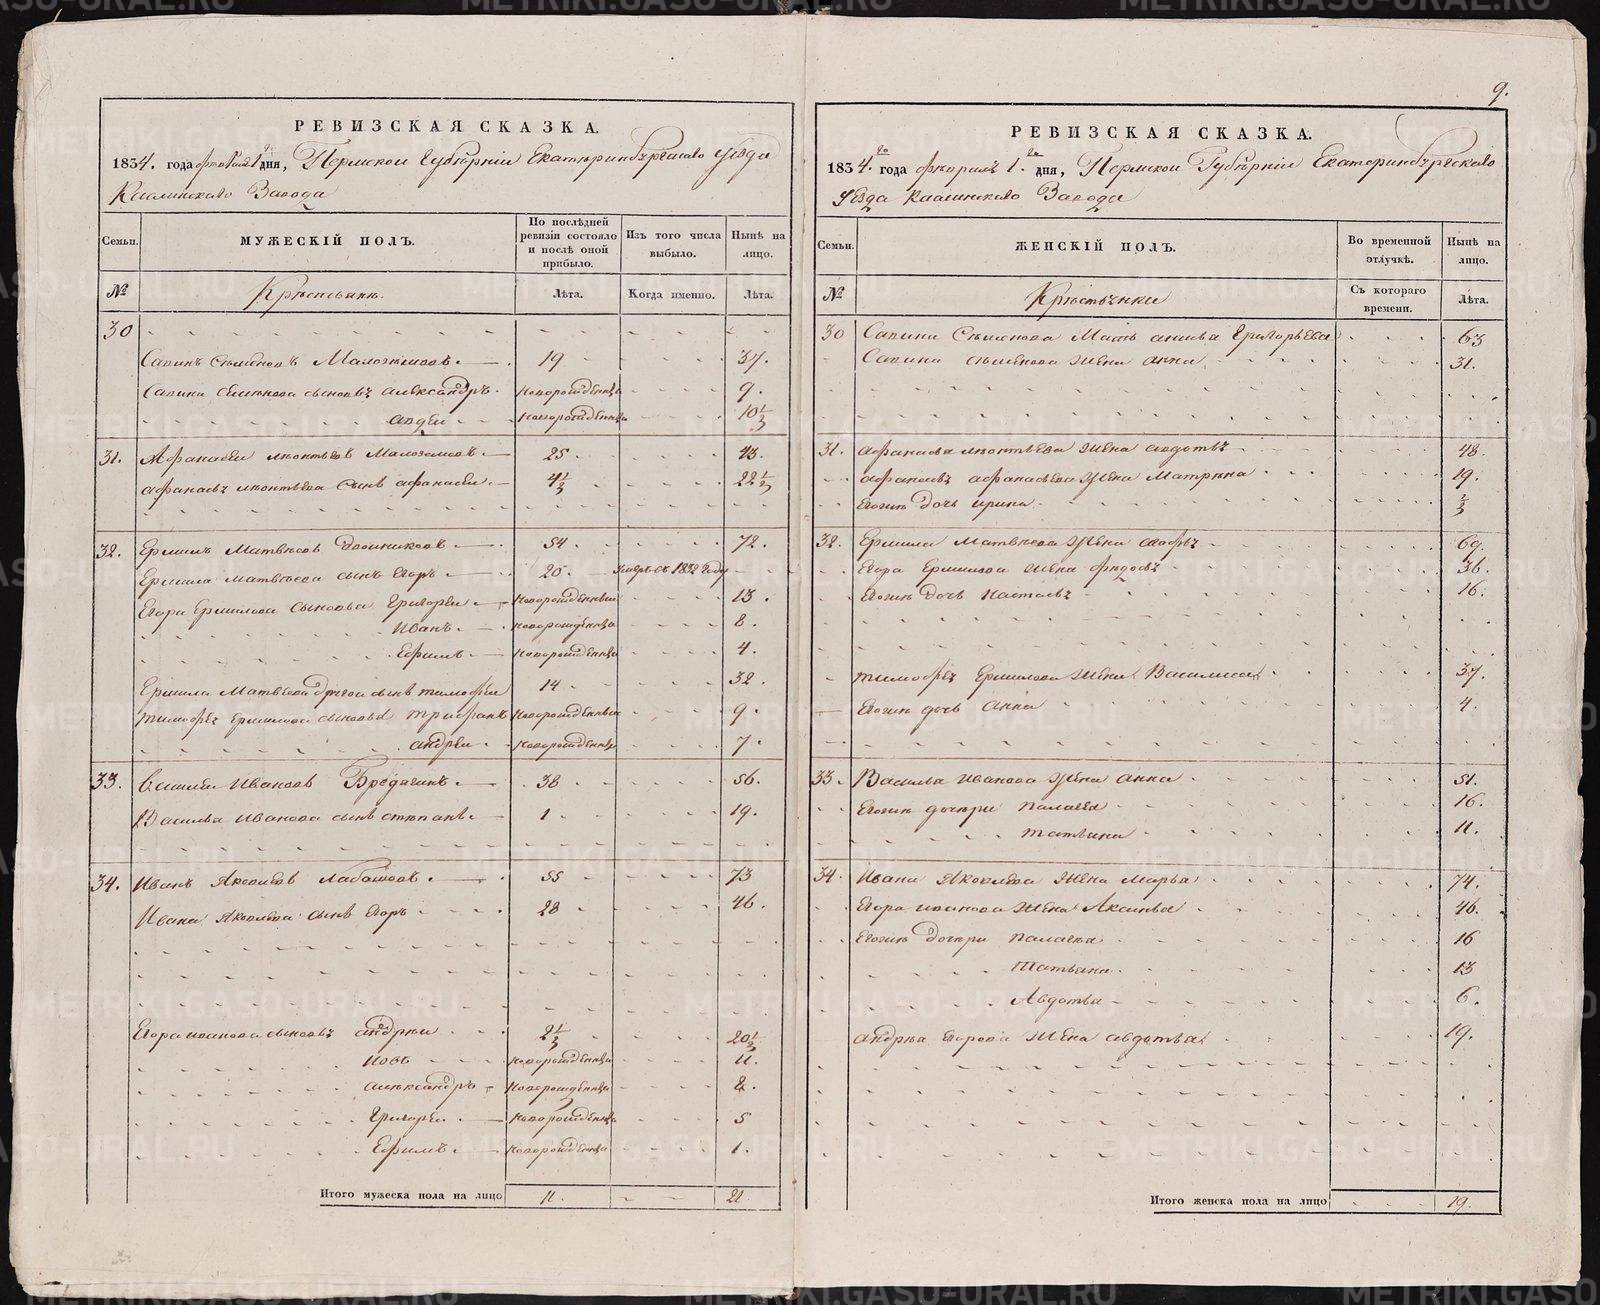 9.
РЕВИЗСКАЯ СКАЗКА.
1834. года февраля 1го дня, Пермской Губернии Екатеринбургского уезда
Каслинского Завода
Семьи. МУЖЕСКІЙ ПОЛЪ. По послѣдней ревизіи состояло и послѣ оной прибыло. Изъ того числа выбыло. Нынѣ на лицо.
№ Крестьяне. Лѣта. Когда именно. Лѣта.
30
Сапинъ Семеновъ 19 37.
Сапина Семенова сыновья александръ новорожденны 9.
авдеи новорожденны 10 1/2
31. Афанасеи леонтьевъ Малоземовъ 25 43.
афанасья леонтьева сынъ афанасеи 4 1/2 22 1/2
32. Ермилъ Матвеевъ Двоиниковъ 54 72.
Ермила матвеева сынъ Егоръ 20 Умръ въ 1832 году
Егора Ермилова сыновья Григореи новорожденныи 13.
Иванъ новорожденны 8.
Ефимъ новорожденны 4.
Ермила Матвеева другои сынъ тимофеи 14 32.
тимофея ермилова сыновья трифанъ новорожденныи 9.
андреи новорожденны 7.
33. Василеи Ивановъ Бродягинъ 38 56.
Василья Иванова сынъ степанъ 1 19.
34. Иванъ Яковлевъ Лабашовъ 55 73
Ивана Яковлева сынъ Егоръ 28 46.
Егора иванова сыновья андреи 2 1/2 20 1/2
Иовъ новорожденны 11.
александръ новорожденны 8.
Григореи новорожденны 5
Ефимъ новорожденны 1.
Итого мужеска пола на лицо 11. 21
РЕВИЗСКАЯ СКАЗКА.
1834го года февраля 1го дня, Пермской Губерніи Екатеринбургского
уезда Каслинского Завода
Семьи. ЖЕНСКІЙ ПОЛЪ. Во временной отлучкѣ. Нынѣ на лицо.
№ Крестьянки Съ котораго времени. Лѣта.
30 Сапина Семенова Мать анисья Григорьева 63
Сапина семенова жена анна 31.
31. афанасья леонтьева жена авдотья 48.
афанасья афанасьева жена Матрена 19.
Егоже дочь ирина 1/2
32. Ермила Матвеева жена 69.
Егора Ермилова жена федосья 36.
Егоже дочь настасья 16.
тимофея Ермилова жена Василиса 37.
Егоже дочь анна 4.
33. Василья иванова жена анна 51.
Егоже дочери палагея 16.
татьяна 11.
34. Ивана Яковлева жена марья 74.
Егора иванова жена Аксинья 46.
Егоже дочери палагея 16
татьяна 13
Авдотья 6.
андрея Егорова жена авдотья 19.
Итого женска пола на лицо 19.
METRIKI.GASO-URAL.RU